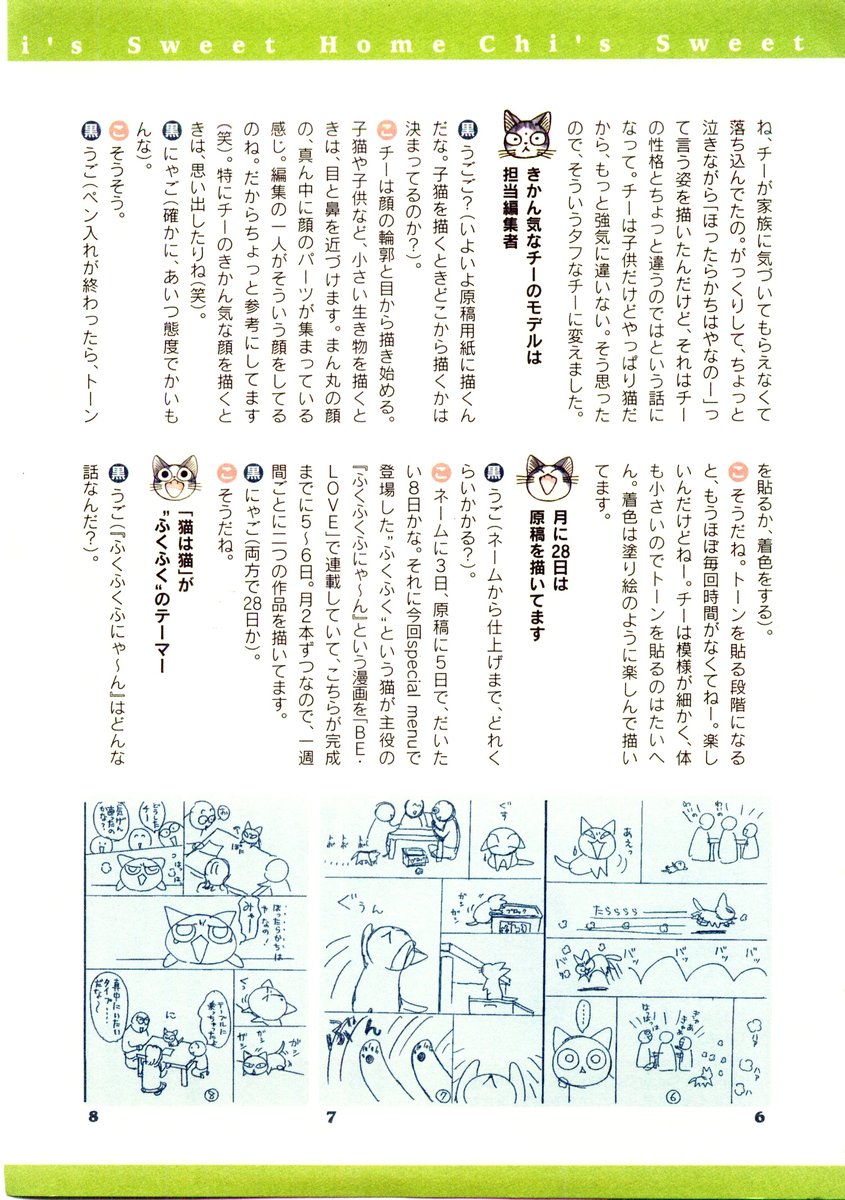 i's Sweet Home Chi's Sweet
ね、チーが家族に気づいてもらえなくて
落ち込んでたの。がっくりして、ちょっと
泣きながら「ほったらかちはやなのー」っ
て言う姿を描いたんだけど、それはチー
の性格とちょっと違うのではという話に
なって。チーは子供だけどやっぱり猫だ
から、もっと強気に違いない。そう思った
ので、そういうタフなチーに変えました。
きかん気なチーのモデルは
担当編集者
黒 うごご?(いよいよ原稿用紙に描くん
だな。子猫を描くときどこから描くかは
決まってるのか?)。
こ チーは顔の輪郭と目から描き始める。
子猫や子供など、小さい生き物を描くと
きは、目と鼻を近づけます。まん丸の顔
の、真ん中に顔のパーツが集まっている
感じ。編集の一人がそういう顔をしてる
のね。だからちょっと参考にしてます
(笑)。特にチーのきかん気な顔を描くと
きは、思い出したりね(笑)。
黒 にゃご(確かに、あいつ態度でかいも
んな)。
こ そうそう。
黒 うご(ペン入れが終わったら、トーン
を貼るか、着色をする)。
こ そうだね。トーンを貼る段階になる
と、もうほぼ毎回時間がなくてねー。楽し
いんだけどねー。チーは模様が細かく、体
も小さいのでトーンを貼るのはたいへ
ん。着色は塗り絵のように楽しんで描い
てます。
月に28日は
原稿を描いてます
黒 うご(ネームから仕上げまで、どれく
らいかかる?)。
こ ネームに3日、原稿に5日で、だいた
い8日かな。それに今回special menuで
登場した“ふくふく”という猫が主役の
『ふくふくふにゃ〜ん』という漫画を「BE・
LOVE」で連載していて、こちらが完成
までに5〜6日。月2本ずつなので、一週
間ごとに二つの作品を描いてます。
黒 にゃご(両方で28日か)。
こ そうだね。
「猫は猫」が
“ふくふく”のテーマー
黒 うご(『ふくふくふにゃ〜ん』はどんな
話なんだ?)。
わいの
わいの
あえっ
たららららら
バッ
バッ
バッ
バッ
……
きゃあ
⑥
ぐす
ブロック
ガシ
ガシ
ぐぅん
ぶん
⑦
どうした
チー
きげん
違ったの
かな?
ほったらかちは
やなの!
みゃー
ガシ
ガシ
テーブルに
乗っちゃったよ
に
真中にいたい
タイプ…
だな〜
⑧
6
7
8